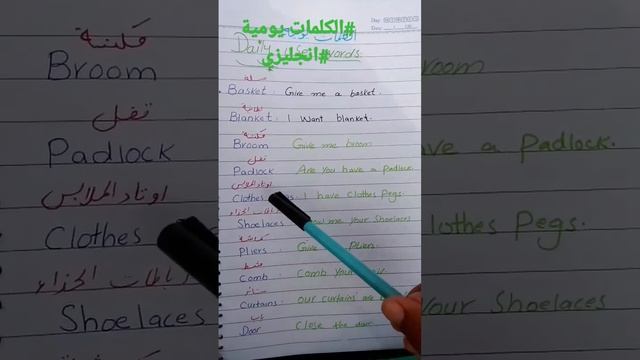 #الكلمات يومية
#انجليزي
Day:
Date:
Daily words
سلة
Basket: Give me a basket.
بطانية
Blanket: I want blanket.
مكنسة
Broom Give me broom
قفل
Padlock Are you have a Padlock
اوتاد الملابس
Clothes I have Clothes Pegs.
Shoelaces me your Shoelaces
كماشة
Pliers: Give Pliers.
مشط
Comb Comb your
ستائر
Curtains: Our curtains are
باب
Door Close the door
مكنسة
Broom
قفل
Padlock
اوتاد الملابس
Clothes
رباطات الحذاء
Shoelaces
oom
ve a Padlock.
lothes Pegs.
your Shoelaces